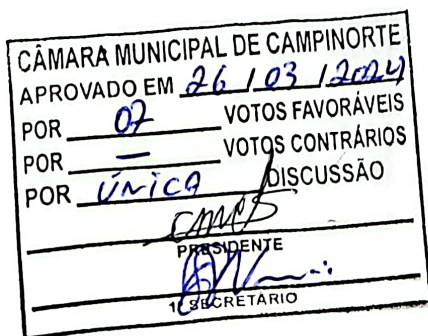 CÂMARA MUNICIPAL DE CAMPINORTE
APROVADO EM 26 / 03 / 2024
POR 07 VOTOS FAVORÁVEIS
POR — VOTOS CONTRÁRIOS
POR ÚNICA DISCUSSÃO
PRESIDENTE
1º SECRETÁRIO